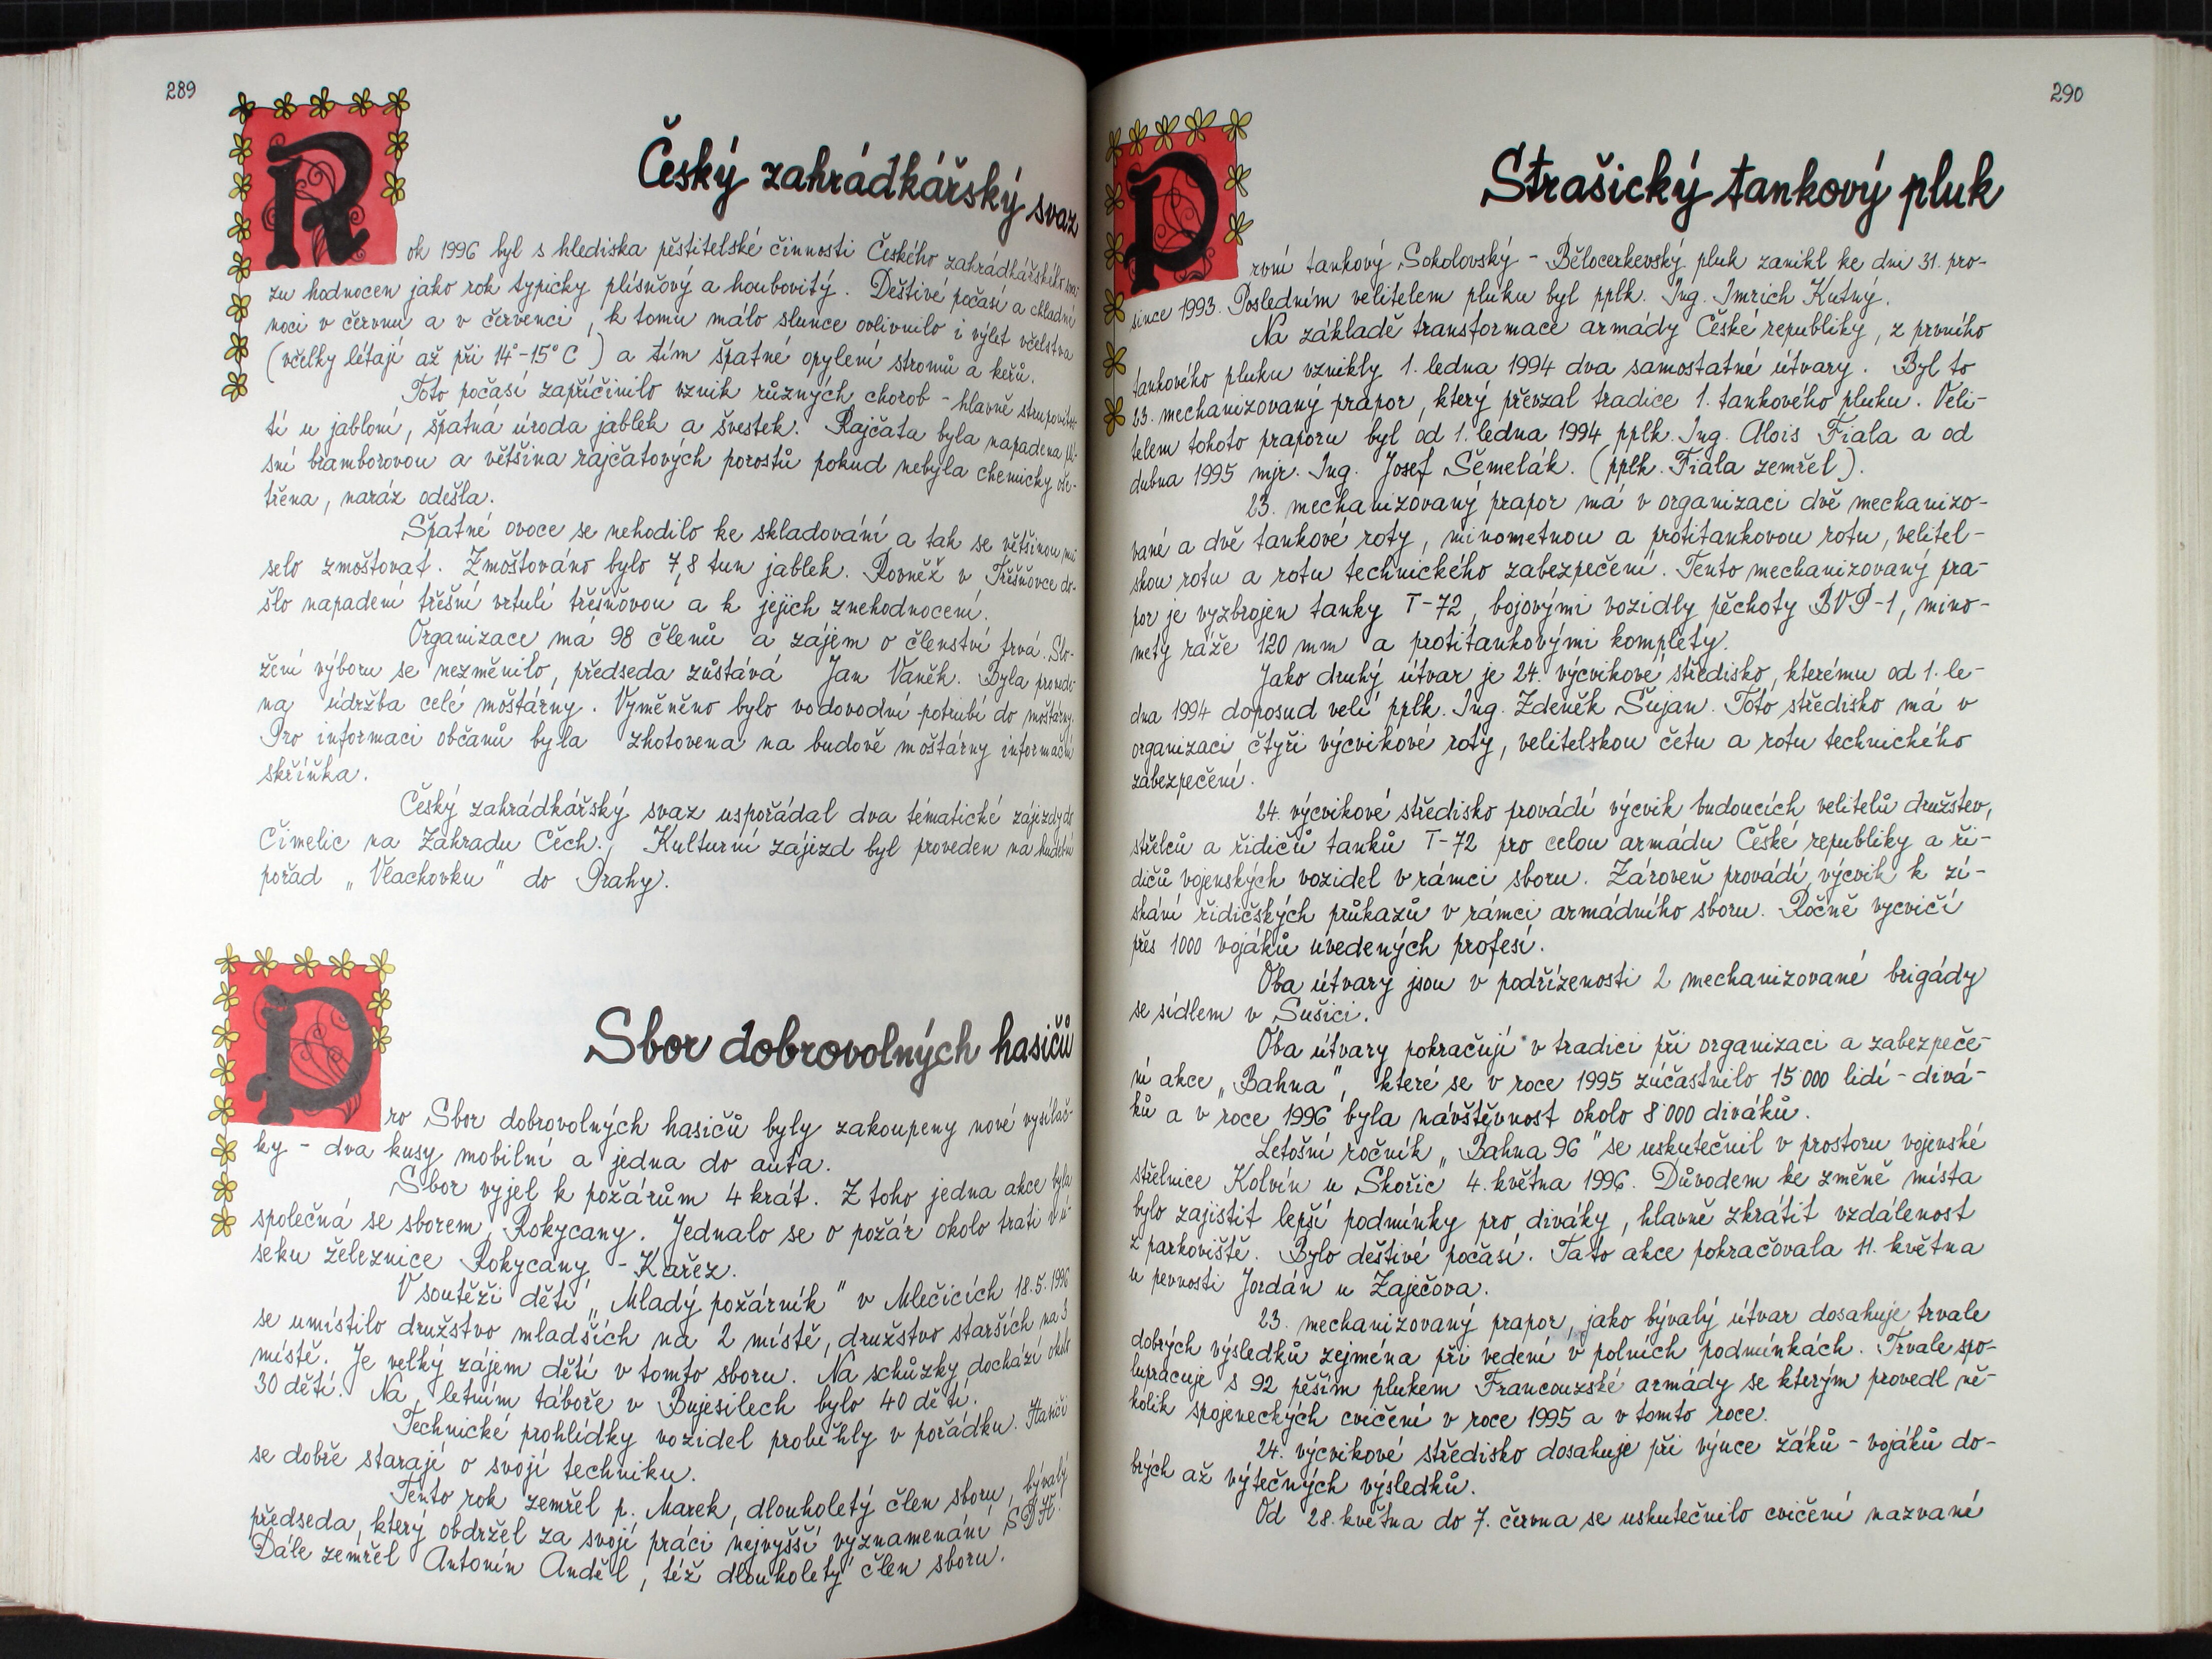 289
Český zahrádkářský svaz
Rok 1996 byl s hlediska pěstitelské činnosti Českého zahrádkářského sva-
zu hodnocen jako rok typicky plísňový a houbovitý. Deštivé počasí a chladné
noci v červnu a v červenci, k tomu málo slunce ovlivnilo i výlet včelstva
(včelky lítají až při 14°-15° C ) a tím špatné opylení stromů a keřů.
Toto počasí zapříčinilo vznik různých chorob - hlavně strupovitos-
ti u jabloní, špatná úroda jablek a švestek. Rajčata byla napadena plí-
sní bramborovou a většina rajčatových porostů pokud nebyla chemicky oše-
třena, naráz odešla.
Špatné ovoce se nehodilo ke skladování a tak se většinou mu-
selo zmoštovat. Zmoštováno bylo 7,8 tun jablek. Rovněž v Třešňovce do-
šlo napadení třešní vrtulí třešňovou a k jejich znehodnocení.
Organizace má 98 členů a zájem o členství trvá. Slo-
žení výboru se nezměnilo, předseda zůstává Jan Vaněk. Byla provede-
na údržba celé moštárny. Vyměněno bylo vodovodní potrubí do moštárny.
Pro informaci občanů byla zhotovena na budově moštárny informační
skříňka.
Český zahrádkářský svaz uspořádal dva tématické zájezdy do
Čimelic na Zahradu Čech. Kulturní zájezd byl proveden na hudební
pořad „Vlachovku" do Prahy.
Sbor dobrovolných hasičů
Pro Sbor dobrovolných hasičů byly zakoupeny nové vysílač-
ky - dva kusy mobilní a jedna do auta.
Sbor vyjel k požárům 4 krát. Z toho jedna akce byla
společná se sborem Rokycany. Jednalo se o požár okolo trati v ú-
seku železnice Rokycany - Kařez.
V soutěži dětí „Mladý požárník" v Mlečicích 18.5.1996
se umístilo družstvo mladších na 2 místě, družstvo starších na 5
místě. Je velký zájem dětí v tomto sboru. Na schůzky dochází okolo
30 dětí. Na letním táboře v Bujesilech bylo 40 dětí.
Technické prohlídky vozidel proběhly v pořádku. Hasiči
se dobře starají o svojí techniku.
Tento rok zemřel p. Marek, dlouholetý člen sboru, bývalý
předseda, který obdržel za svojí práci nejvyšší vyznamenání SDH.
Dále zemřel Antonín Anděl, též dlouholetý člen sboru.
290
Strašický tankový pluk
První tankový Sokolovský - Bělocerkevský pluk zanikl ke dni 31. pro-
since 1993. Posledním velitelem pluku byl pplk. Ing. Imrich Kutný.
Na základě transformace armády České republiky, z prvního
tankového pluku vznikly 1. ledna 1994 dva samostatné útvary. Byl to
23. mechanizovaný prapor, který převzal tradice 1. tankového pluku. Veli-
telem tohoto praporu byl od 1. ledna 1994 pplk. Ing. Alois Fiala a od
dubna 1995 mjr. Ing. Josef Semelák. (pplk. Fiala zemřel).
23. mechanizovaný prapor má v organizaci dvě mechanizo-
vané a dvě tankové roty, minometnou a protitankovou rotu, velitel-
skou rotu a rotu technického zabezpečení. Tento mechanizovaný pra-
por je vyzbrojen tanky T-72, bojovými vozidly pěchoty BVP-1, mino-
mety ráže 120 mm a protitankovými komplety.
Jako druhý útvar je 24. výcvikové středisko, kterému od 1. le-
dna 1994 doposud velí pplk. Ing. Zdeněk Šujan. Toto středisko má v
organizaci čtyři výcvikové roty, velitelskou četu a rotu technického
zabezpečení.
24. výcvikové středisko provádí výcvik budoucích velitelů družstev,
střelců a řidičů tanků T-72 pro celou armádu České republiky a ři-
dičů vojenských vozidel v rámci sboru. Zároveň provádí výcvik k zí-
skání řidičských průkazů v rámci armádního sboru. Ročně vycvičí
přes 1000 vojáků uvedených profesí.
Oba útvary jsou v podřízenosti 2 mechanizované brigády
se sídlem v Sušici.
Oba útvary pokračují v tradici při organizaci a zabezpeče-
ní akce „Bahna", které se v roce 1995 zúčastnilo 15 000 lidí - divá-
ků a v roce 1996 byla návštěvnost okolo 8 000 diváků.
Letošní ročník „Bahna 96" se uskutečnil v prostoru vojenské
střelnice Kolvín u Skořic 4. května 1996. Důvodem ke změně místa
bylo zajistit lepší podmínky pro diváky, hlavně zkrátit vzdálenost
z parkoviště. Bylo deštivé počasí. Tato akce pokračovala 11. května
u pevnosti Jordán u Zaječova.
23. mechanizovaný prapor, jako bývalý útvar dosahuje trvale
dobrých výsledků zejména při vedení v polních podmínkách. Trvale spo-
lupracuje s 92 pěším plukem Francouzské armády se kterým provedl ně-
kolik spojeneckých cvičení v roce 1995 a v tomto roce.
24. výcvikové středisko dosahuje při výuce žáků - vojáků do-
brých až výtečných výsledků.
Od 28. května do 7. června se uskutečnilo cvičení nazvané